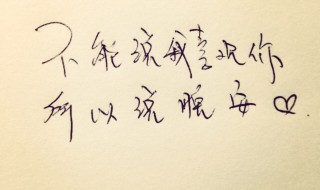 不能说我喜欢你
所以说晚安♡.